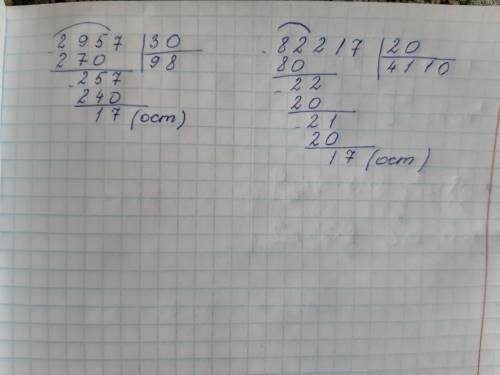 2957 | 30
- 270 | 98
- 257
240
17 (ост)
- 82217 | 20
80 | 4110
- 22
20
- 21
20
17 (ост)